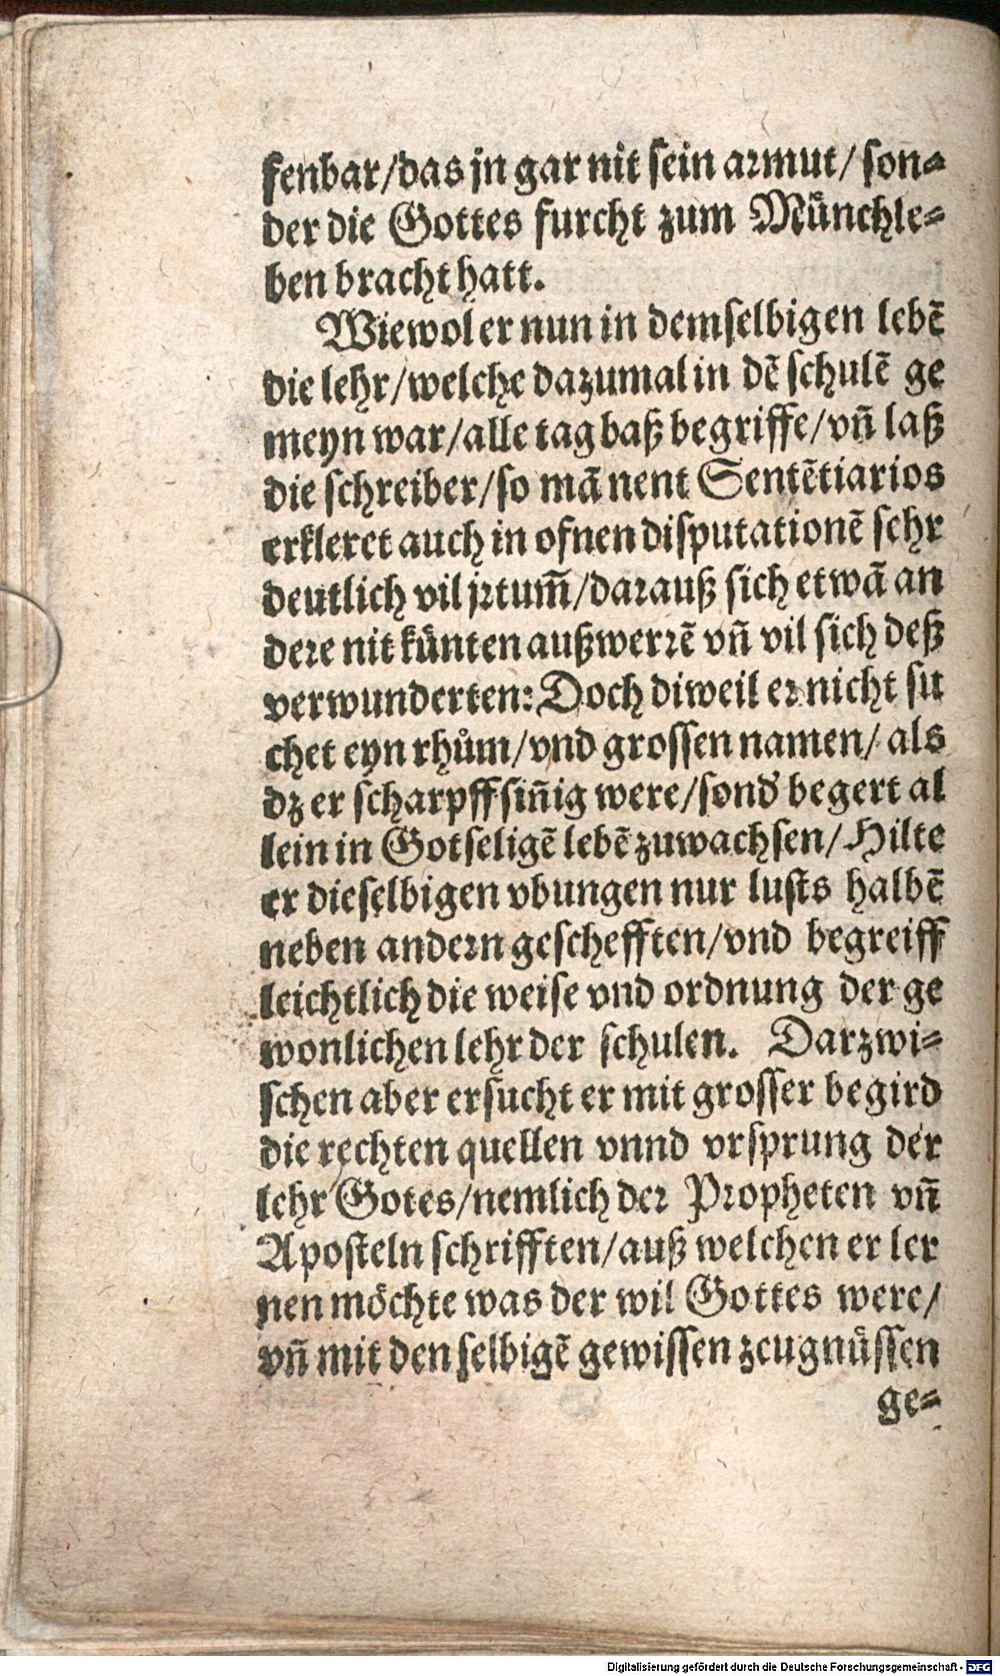 fenbar/das jn gar nit sein armut/ son⸗
der die Gottes furcht zum Münchle⸗
ben bracht hatt.
Wiewol er nun in demselbigen lebē
die lehr/welche dazumal in dē schulē ge
meyn war/alle tag baß begriffe/vñ laß
die schreiber/so mā nent Sentētiarios
erkleret auch in ofnen disputationē sehr
deutlich vil jrtum̃/darauß sich etwā an
dere nit künten außwerrē vñ vil sich deß
verwunderten: Doch diweil er nicht su
chet eyn rhům/vnd grossen namen/ als
dz er scharpffsiñig were/sond̕ begert al
lein in Gotseligē lebē zuwachsen/ Hilte
er dieselbigen vbungen nur lusts halbē
neben andern geschefften/vnd begreiff
leichtlich die weise vnd ordnung der ge
wonlichen lehr der schulen. Darzwi⸗
schen aber ersucht er mit grosser begird
die rechten quellen vnnd vrsprung der
lehr Gotes/nemlich der Propheten vñ
Aposteln schrifften/auß welchen er ler
nen möchte was der wil Gottes were/
vñ mit den selbigē gewissen zeugnüssen
ge⸗
Digitalisierung gefördert durch die Deutsche Forschungsgemeinschaft - DFG